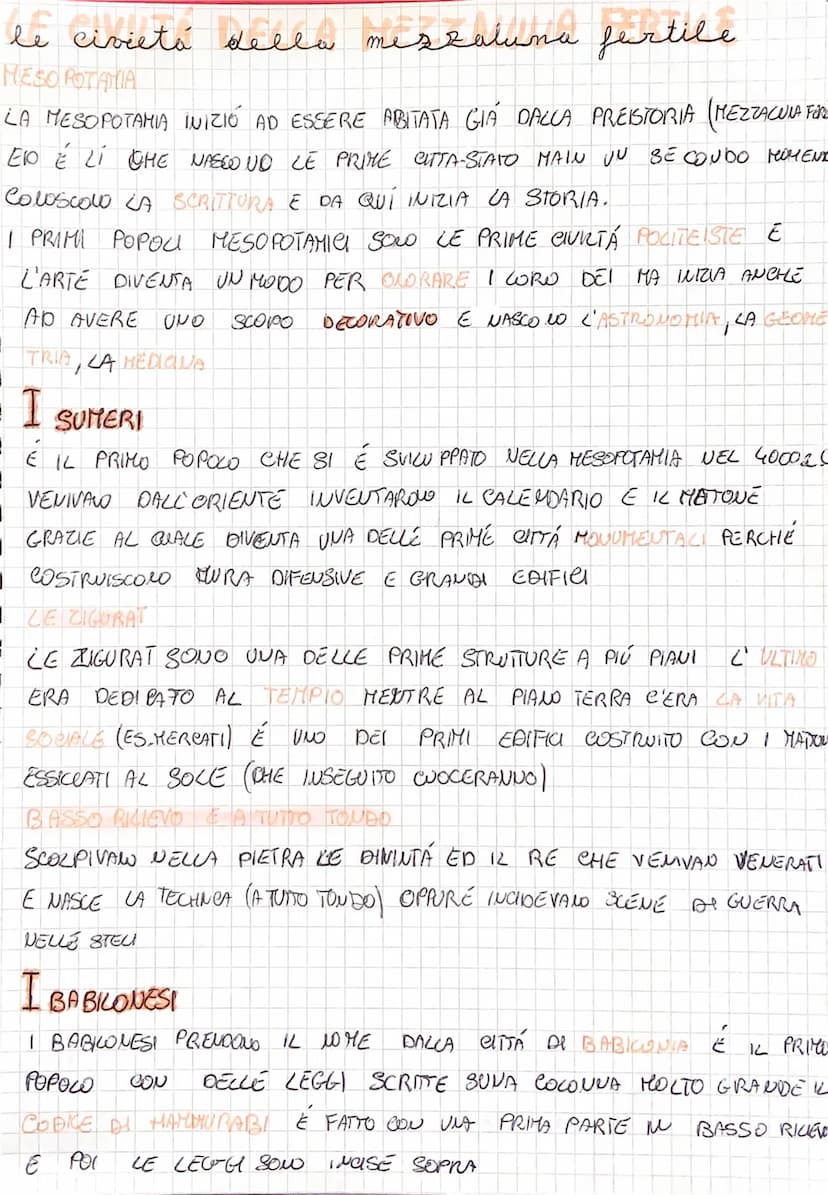 LE CIVILTÁ DELLA MEZZALUNA FERTILE
le civietá della mezzaluna fertile
MESOPOTAMIA
LA MESOPOTAMIA INIZIÓ AD ESSERE ABITATA GIÁ DALLA PREISTORIA (MEZZALUNA FER
ED É LÍ CHE NASCONO LE PRIME CITTA-STATO MA IN UN SECONDO MOMEN
CONOSCONO LA SCRITTURA E DA QUÍ INIZIA LA STORIA.
I PRIMI POPOLI MESOPOTAMICI SONO LE PRIME CIVILTÁ POLITEISTE E
L'ARTE DIVENTA UN MODO PER ONORARE I LORO DEI MA INIZIA ANCHE
AD AVERE UNO SCOPO DECORATIVO E NASCONO L'ASTRONOMIA, LA GEOME
TRIA, LA MEDICINA
I SUMERI
É IL PRIMO POPOLO CHE SI É SVILUPPATO NELLA MESOPOTAMIA NEL 4000
VENIVANO DALL'ORIENTE INVENTARONO IL CALENDARIO E IL MATTONE
GRAZIE AL QUALE DIVENTA UNA DELLE PRIME CITTÁ MONUMENTALI PERCHÉ
COSTRUISCONO MURA DIFENSIVE E GRANDI EDIFICI
LE ZIGURAT
LE ZIGURAT SONO UNA DELLE PRIME STRUTTURE A PIÚ PIANI L'ULTIMO
ERA DEDICATO AL TEMPIO MENTRE AL PIANO TERRA C'ERA LA VITA
SOCIALE (ES.MERCATI) É UNO DEI PRIMI EDIFICI COSTRUITO CON I MATTON
ESSICCATI AL SOLE (CHE INSEGUITO CUOCERANNO)
BASSO RILIEVO E A TUTTO TONDO
SCOLPIVANO NELLA PIETRA LE DIVINTÁ ED IL RE CHE VENIVAN VENERATI
E NASCE LA TECHNICA (A TUTTO TONDO) OPPURE INCIDEVANO SCENE DI GUERRA
NELLE STELI
I BABILONESI
I BABILONESI PRENDONO IL NOME DALLA CITTÁ DI BABILONIA É IL PRIMO
POPOLO CON DELLE LEGGI SCRITTE SU UNA COLONNA MOLTO GRANDE IL
CODICE DI HAMMURABI É FATTO CON UNA PRIMA PARTE IN BASSO RILIEVO
E POI LE LEGGI SONO INCISE SOPRA